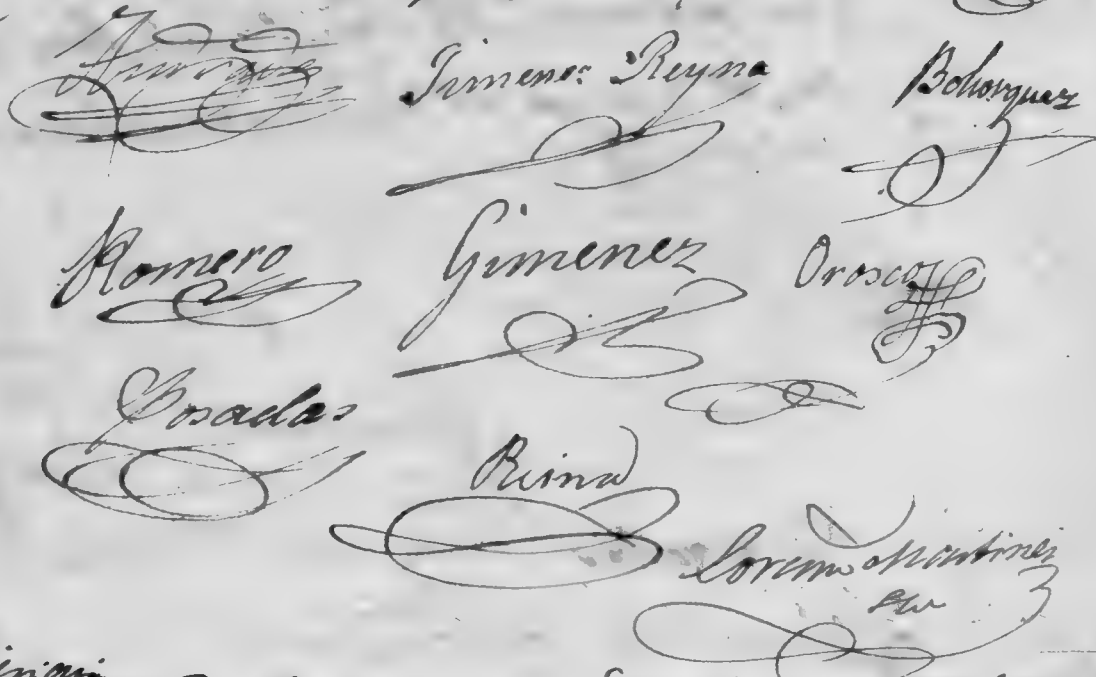 Jimenez Reyna Bohorquez
Romero Gimenez Orosco
Posadas
Reina
Lorenzo Martinez